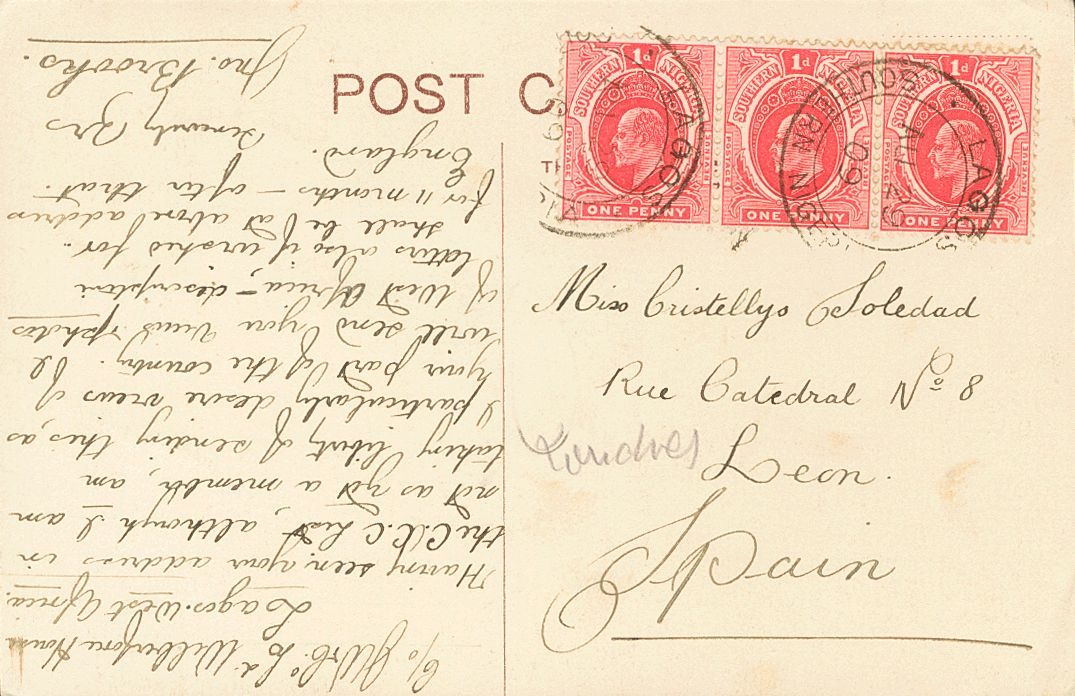 POST C
TH
SOUTHERN NIGERIA
1d
POSTAGE
ONE PENNY
SOUTHERN NIGERIA
1d
POSTAGE
REVENUE
ONE PENNY
SOUTHERN NIGERIA
1d
POSTAGE
REVENUE
ONE PENNY
LAGOS
LAGOS
SOUTHERN NIGERIA
AU 20
09
Miss Cristellys Soledad
Rue Catedral No 8
Leon.
Londres
Spain
c/o Ld Wilberforce House
Lagos. West Africa.
"Having seen your address in
the C.C.C. List, although I am
not as yet a member, am
taking liberty of sending this, as
I particularly desire views of
your part of the country. I
will send you views & photos
of West Africa, - description
letters also if wished for.
Shall be at above address
for 11 months - after that.
England.
Sincerely Yrs
Jno. Brooks.